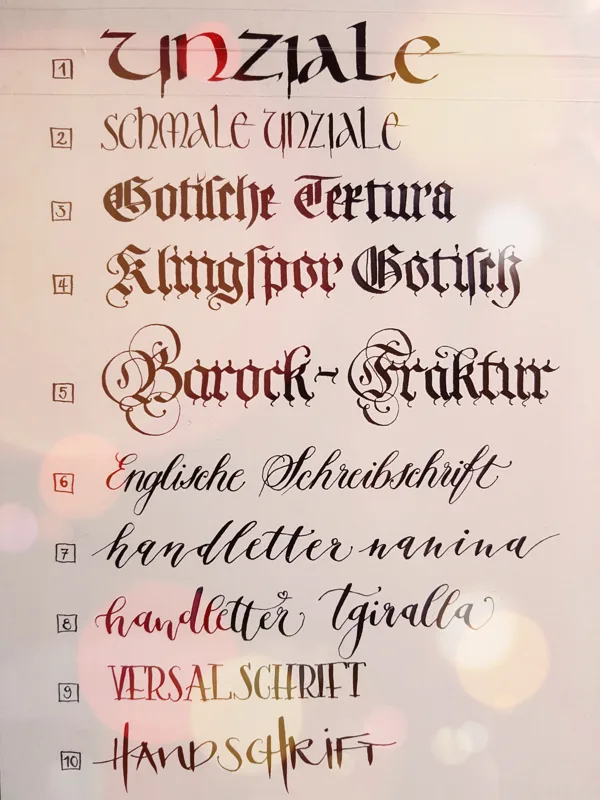 1 Unziale
2 Schmale Unziale
3 Gotische Textura
4 Klingspor Gotisch
5 Barock-Fraktur
6 Englische Schreibschrift
7 handletter nanina
8 handletter Tgiralla
9 VERSALSCHRIFT
10 HANDSCHRIFT